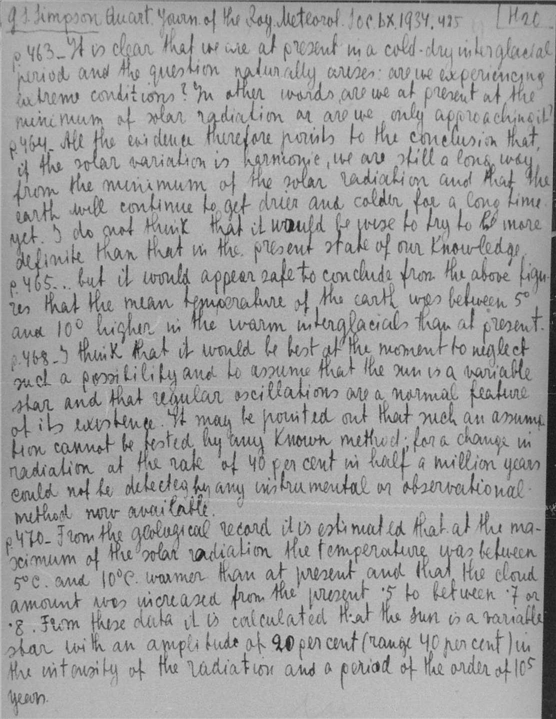 G S Simpson Quart. Journ. of the Roy. Meteorol. Soc LX, 1934, 425 [H20
p. 463 - It is clear that we are at present in a cold-dry interglacial
period and the question naturally arises: are we experiencing
extreme conditions? In other words, are we at present at the
minimum of solar radiation or are we only approaching it?
p. 464 - All the evidence therefore points to the conclusion that,
if the solar variation is harmonic, we are still a long way
from the minimum of the solar radiation and that the
earth will continue to get drier and colder for a long time
yet. I do not think that it would be wise to try to be more
definite than that in the present state of our knowledge
p. 465... but it would appear safe to conclude from the above figu-
res that the mean temperature of the earth was between 5°
and 10° higher in the warm interglacials than at present.
p. 468. I think that it would be best at the moment to neglect
such a possibility and to assume that the sun is a variable
star and that regular oscillations are a normal feature
of its existence. It may be pointed out that such an assump
tion cannot be tested by any known method, for a change in
radiation at the rate of 40 per cent in half a million years
could not be detected by any instrumental or observational
method now available.
p. 470 - From the geological record it is estimated that at the ma-
ximum of the solar radiation the temperature was between
5°C. and 10°C. warmer than at present and that the cloud
amount was increased from the present .5 to between .7 or
.8. From these data it is calculated that the sun is a variable
star with an amplitude of 20 per cent (range 40 per cent) in
the intensity of the radiation and a period of the order of 10⁵
years.